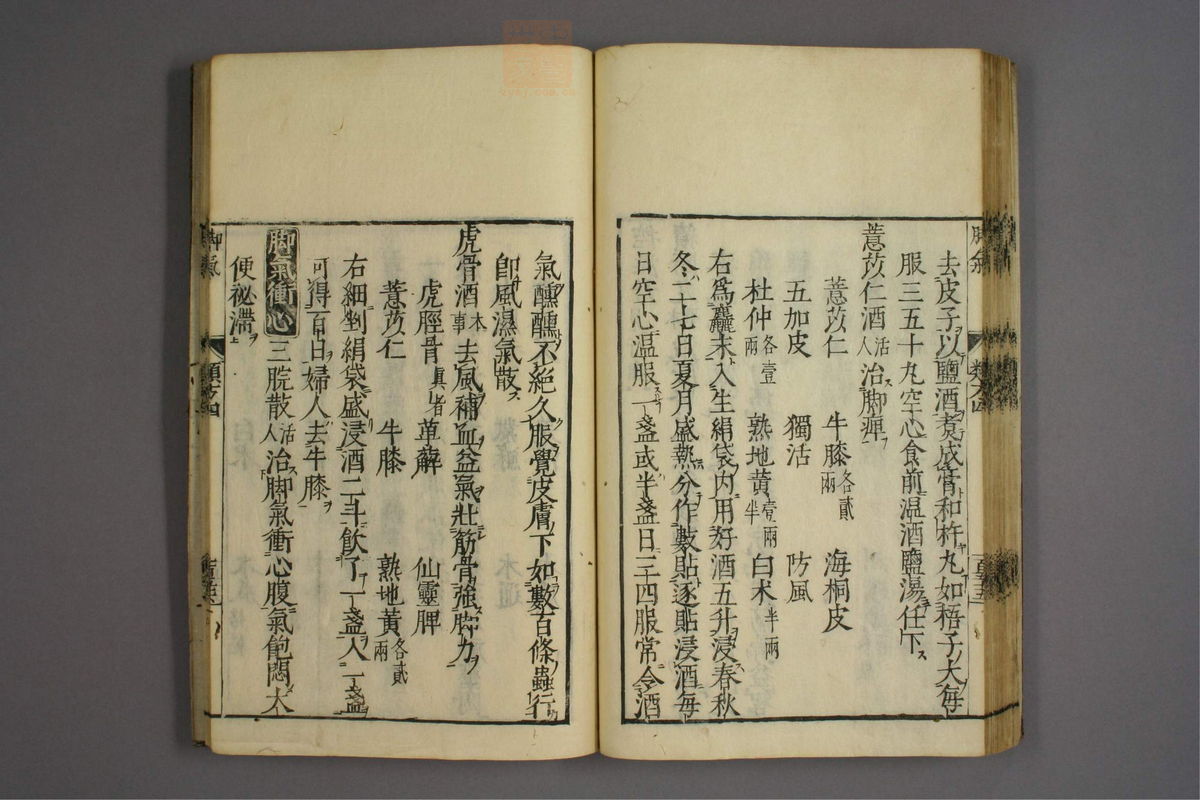 去皮子以鹽酒煑成膏和杵丸如梧子大每
服三五十丸空心食前温酒鹽湯任下
薏苡仁酒活人治脚痺
薏苡仁 牛膝各貳兩 海桐皮
五加皮 獨活 防風
杜仲各壹兩 熟地黄壹兩半 白术半兩
右爲麄末入生絹袋內用好酒五升浸春秋
冬二七日夏月盛熱分作數貼逐貼浸酒每
日空心温服一盞或半盞日三四服常令酒
氣醺醺不絕久服覺皮膚下如數百條蟲行
卽風濕氣散
虎骨酒本事去風補血益氣壯筋骨強脚力
虎脛骨真者 萆薢 仙靈脾
薏苡仁 牛膝 熟地黄各貳兩
右細剉絹袋盛浸酒二斗飲了一盞入一盞
可得百日婦人去牛膝
脚氣衝心 三脘散活人治脚氣衝心腹氣飽悶大
便祕滯
脚氣 類方四